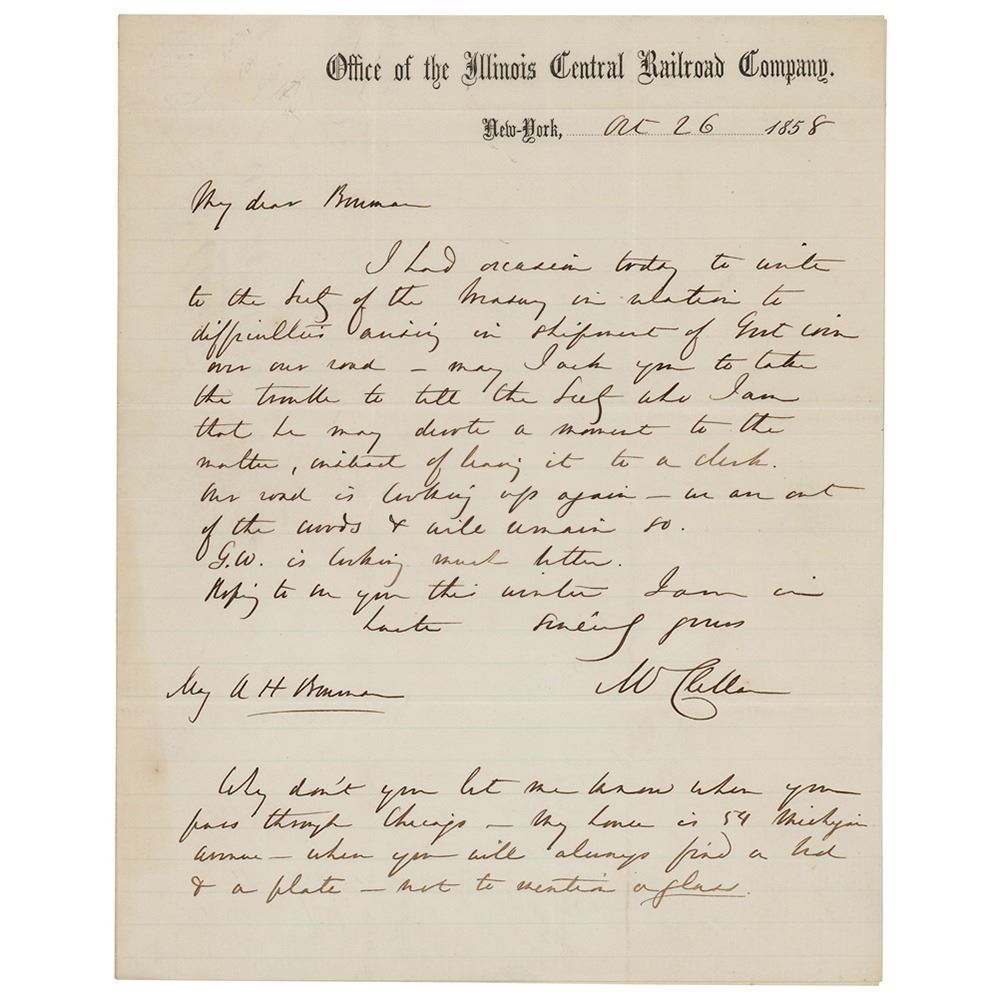 Office of the Illinois Central Railroad Company.
New-York, Oct 26 1858
My dear Bowman
I had occasion today to write
to the Secty of the Treasury in relation to
difficulties arising in shipment of Govt iron
over our road – may I ask you to take
the trouble to tell the Secty who I am
that he may devote a moment to the
matter, instead of leaving it to a clerk.
Our road is looking up again – we are out
of the woods & will remain so.
G.W. is looking much better.
Hoping to see you this winter I am in
haste sincerely yours
McClellan
Maj A H Bowman
Why don't you let me know when you
pass through Chicago – My house is 54 Michigan
avenue – where you will always find a bed
& a plate – not to mention a glass.